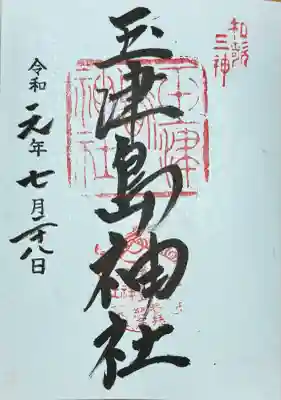 和歌三神
玉津島神社
令和元年七月二十八日
玉津島神社